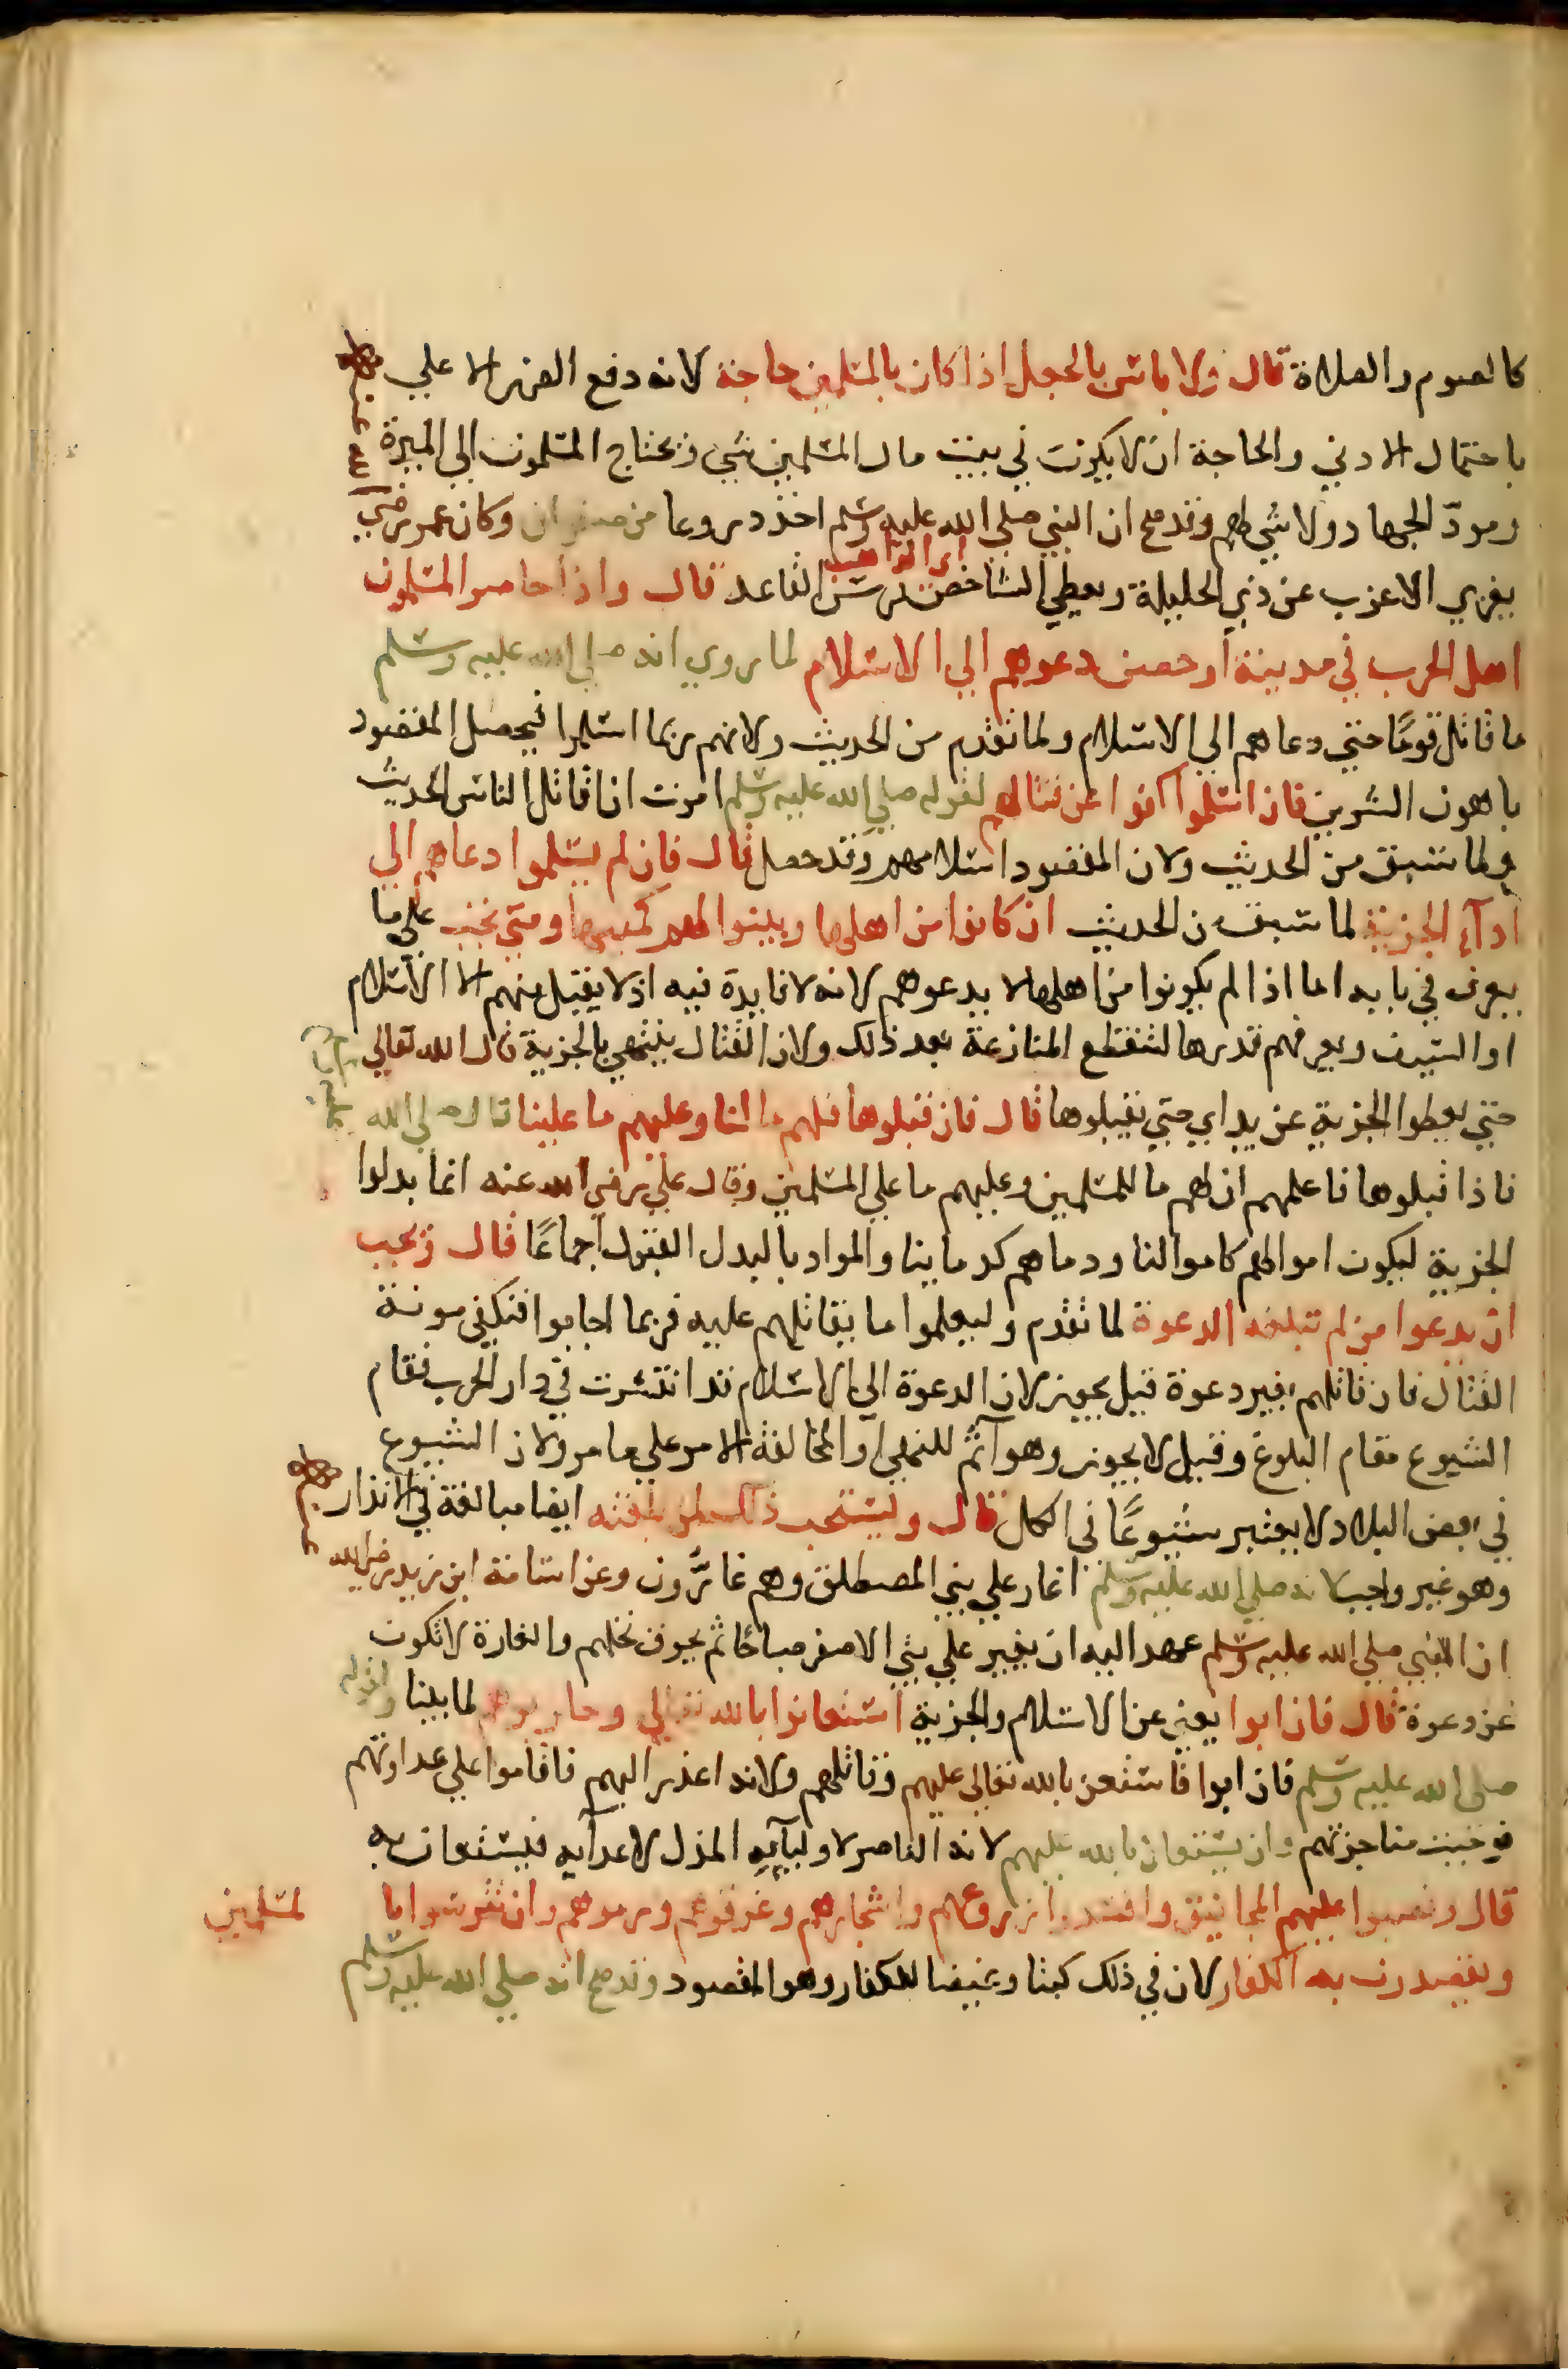 كالصوم والصلاة قال ولا باس بالجعل اذا كان بالمسلمين حاجة لانه دفع الضرر الاعلي
باحتمال الادني والحاجة ان لا يكون في بيت مال المسلمين شي وتحتاج المسلمون الي الميرة
ومواد الجهاد ولا شي لهم وقد صح ان النبي صلي الله عليه وسلم اخذ دروعا من صفوان وكان عمر رضي
الله عنه
يغزي الاعزب عن ذي الحليلة ويعطي الشاخص فرس القاعد قال واذا حاصر المسلمون
اهل الحرب في مدينة او حصن دعوهم الي الاسلام لما روي انه صلي الله عليه وسلم
ما قاتل قوما حتي دعاهم الي الاسلام ولما تقدم من الحديث ولانهم ربما اسلموا فيحصل المقصود
باهون الشرين فان اسلموا كفوا عن قتالهم لقوله صلي الله عليه وسلم امرت ان اقاتل الناس الحديث
ولما سبق من الحديث ولان المقصود اسلامهم وقد حصل قال فان لم يسلموا دعاهم الي
ادآء الجزية لما سبق من الحديث ان كانوا من اهلها وبينوا لهم كميتها ومتي تجب علي ما
يعرف في بابه اما اذا لم يكونوا من اهلها لا يدعوهم لانه لا فايدة فيه اذ لا يقبل منهم الا الاسلام
او السيف ويعرفهم قدرها لتنقطع المنازعة بعد ذلك ولان القتال ينتهي بالجزية قال الله تعالي
حتي يعطوا الجزية عن يد اي حتي يقبلوها قال فان قبلوها فلهم ما لنا وعليهم ما علينا قال صلي الله
فاذا قبلوها فاعلمهم ان لهم ما للمسلمين وعليهم ما علي المسلمين وقال علي رضي الله عنه انما بدلوا
الجزية ليكون اموالهم كاموالنا ودماهم كدماينا والمراد بالبدل القبول اجماعا قال ويجب
ان يدعوا من لم تبلغه الدعوة لما تقدم وليعلموا ما يقاتلهم عليه فربما اجابوا فنكفي مونة
القتال فان قاتلهم بغير دعوة قيل يجوز لان الدعوة الي الاسلام قد انتشرت في دار الحرب فقام
الشيوع مقام البلوغ وقيل لا يجوز وهو آثم للنهي او لمخالفة الامر علي ما مر ولان الشيوع
في بعض البلاد لا يعتبر شيوعا في الكل قال ويستحب ذلك لمن بلغته ايضا مبالغة في الانذار
وهو غير واجب لانه صلي الله عليه وسلم اغار علي بني المصطلق وهم غارّون وعن اسامة ابن زيد رضي الله
ان النبي صلي الله عليه وسلم عهد اليه ان يغير علي بني الاصفر صباحا ثم يحرق نخلهم والغارة لا تكون
عن دعوة قال فان ابوا يعني عن الاسلام والجزية استعانوا بالله تعالي وحاربوهم لما بينا ولقوله
صلي الله عليه وسلم فان ابوا فاستعن بالله تعالي عليهم وقاتلهم ولانه اعذر اليهم فاقاموا علي عداوتهم
فوجبت مناجزتهم وان يستعان بالله عليهم لانه الناصر لاوليآيه المذل لاعدآيه فيستعان به
قال ونصبوا عليهم المجانيق وافسدوا زروعهم واشجارهم وغرقوهم ورموهم وان تترسوا بالمسلمين
ويقصدون به الكفار لان في ذلك كبتا وغيضا للكفار وهو المقصود وقد صح انه صلي الله عليه وسلم